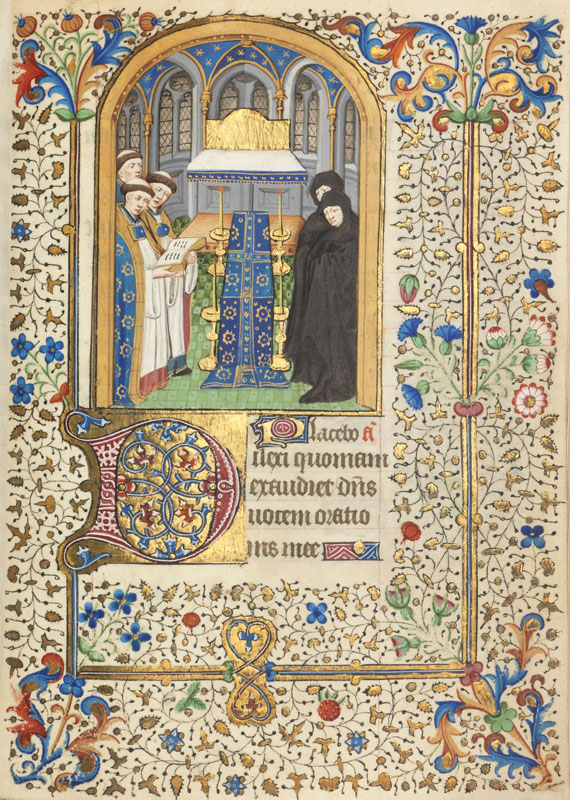 Placebo añ
Dilexi quoniam
exaudiet dns
uocem oratio
nis mee